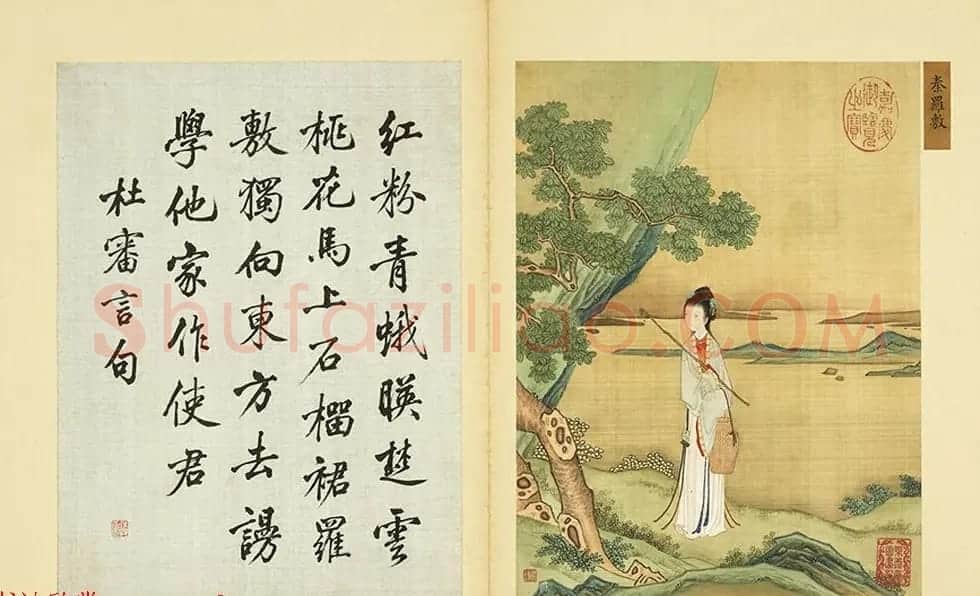 秦羅敷
嘉慶御覽之寶
紅粉青蛾暎楚雲
桃花馬上石榴裙羅
敷獨向東方去謾
學他家作使君
杜審言句
Shufaziliao.COM